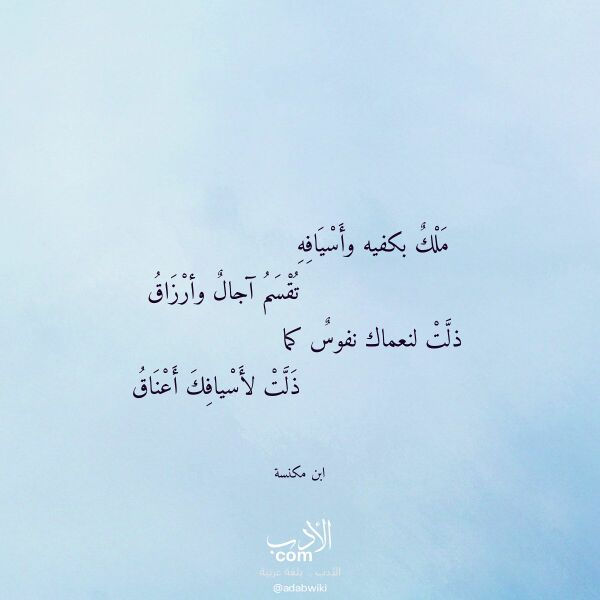 مَلْكٌ بكفيه وأَسْيَافِهِ
تُقْسَمُ آجالٌ وأرْزَاقُ
ذلَّتْ لنعماك نفوسٌ كما
ذَلَّتْ لأَسْيافِكَ أَعْنَاقُ
ابن مكنسة
الأدب
com
الأدب .. بلغة عربية
@adabwiki